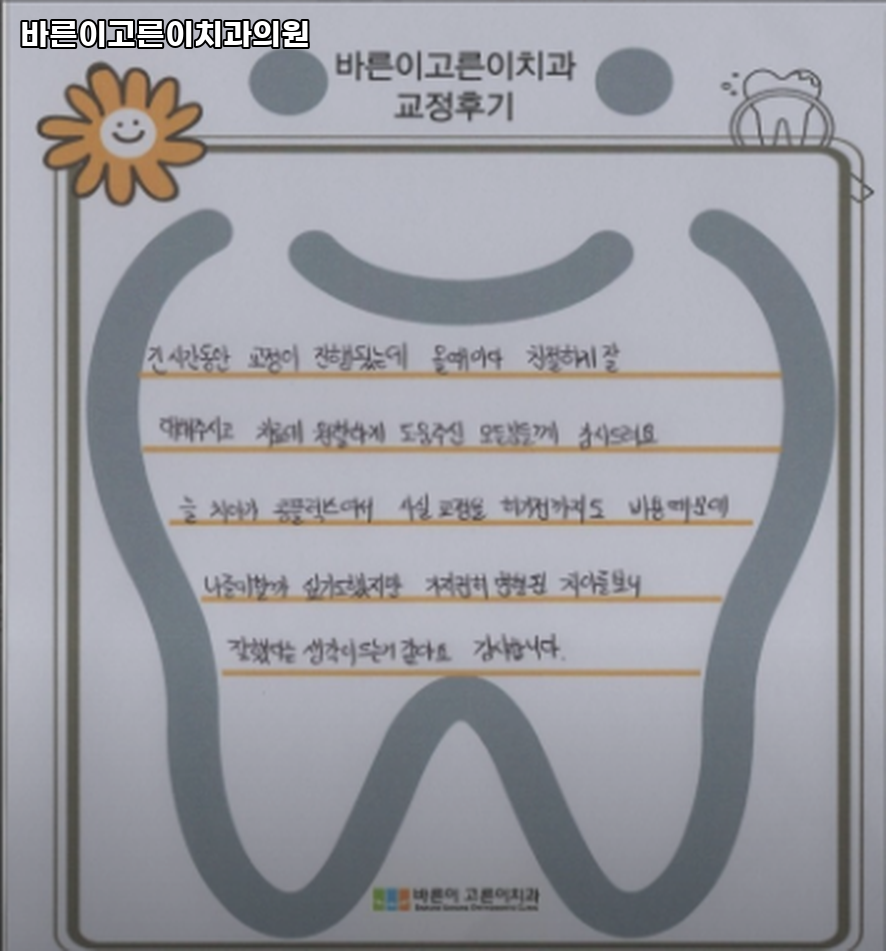 바른이고른이치과의원
바른이고른이치과
교정후기
긴 시간동안 교정이 진행됬는데 올때마다 친절하게 잘
대해주시고 치료에 원할하게 도움주신 모든분들께 감사드려요
늘 치아가 콤플럭스여서 사실 교정을 하기전까지도 비용때문에
나중에할까 싶기도했지만 가지런히 정렬된 치아를보니
잘했다는 생각이드는거 같아요 감사합니다.
바른이 고른이치과